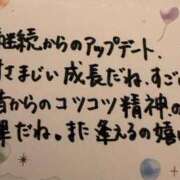 継続からのアップデート、
すさまじい成長だね、すご
昔からのコツコツ精神の
果だね。また逢えるの嬉